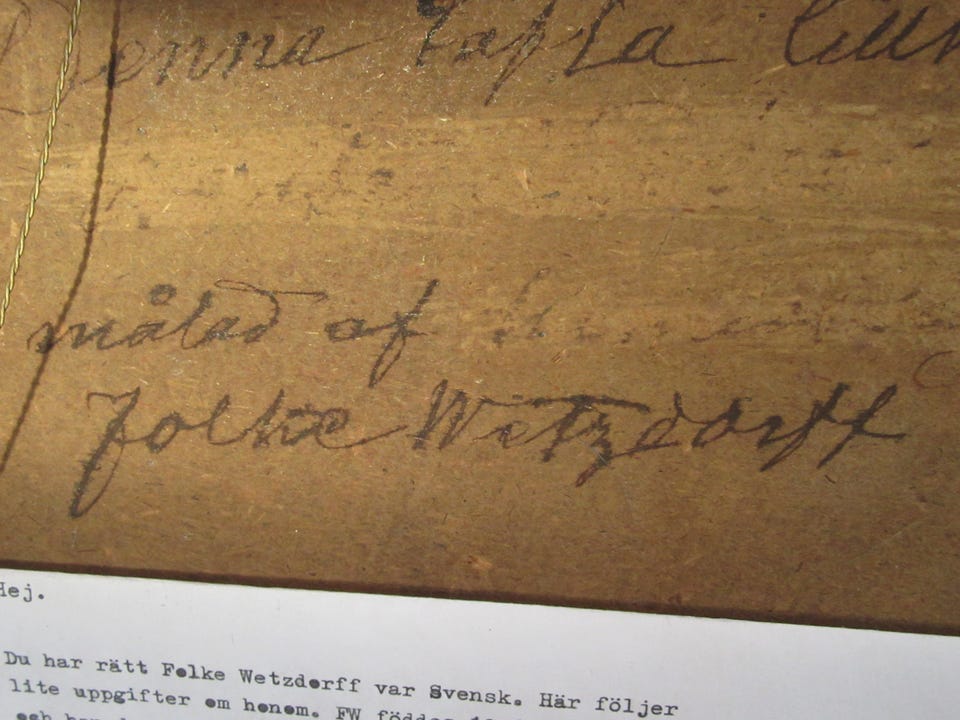 Denna tafla
målad af
Folke Wetzdorff
Hej.
Du har rätt Folke Wetzdorff var Svensk. Här följer
lite uppgifter om honom. FW föddes
och